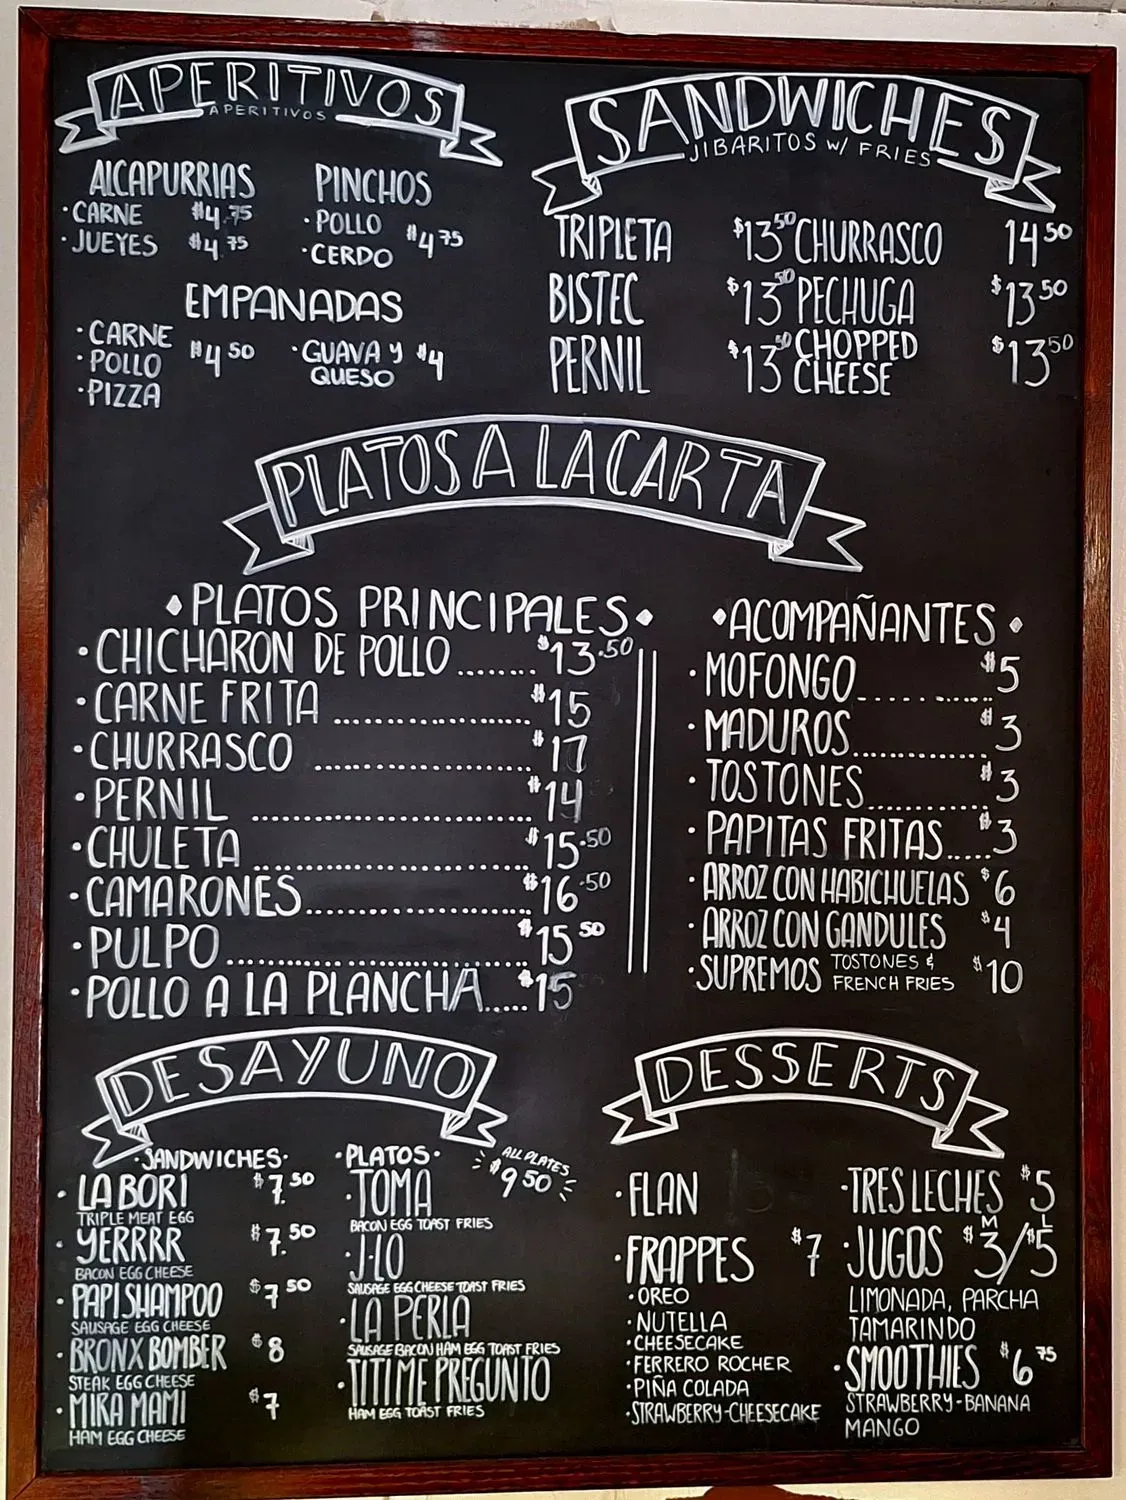 APERITIVOS
APERITIVOS
ALCAPURRIAS
• CARNE $4.75
• JUEYES $4.75
PINCHOS
• POLLO
• CERDO
$4.75
EMPANADAS
• CARNE
• POLLO
• PIZZA
$4.50
• GUAVA Y
QUESO
$4
SANDWICHES
JIBARITOS W/ FRIES
TRIPLETA $13.50 CHURRASCO 14.50
BISTEC $13.50 PECHUGA $13.50
PERNIL $13.50 CHOPPED
CHEESE $13.50
PLATOS A LA CARTA
• PLATOS PRINCIPALES •
• CHICHARON DE POLLO ....... $13.50
• CARNE FRITA .................. $15
• CHURRASCO .................. $17
• PERNIL .................. $14
• CHULETA .................. $15.50
• CAMARONES .................. $16.50
• PULPO .................. $15.50
• POLLO A LA PLANCHA ..... $15
• ACOMPAÑANTES •
• MOFONGO .......... $5
• MADUROS .......... $3
• TOSTONES .......... $3
• PAPITAS FRITAS ..... $3
• ARROZ CON HABICHUELAS $6
• ARROZ CON GANDULES $4
• SUPREMOS TOSTONES &
FRENCH FRIES $10
DESAYUNO
• SANDWICHES •
• LA BORI $7.50
TRIPLE MEAT EGG
• YERRRR $7.50
BACON EGG CHEESE
• PAPI SHAMPOO $7.50
SAUSAGE EGG CHEESE
• BRONX BOMBER $8
STEAK EGG CHEESE
• MIRA MAMI $7
HAM EGG CHEESE
• PLATOS •
ALL PLATES
$9.50
• TOMA
BACON EGG TOAST FRIES
• J-LO
SAUSAGE EGG CHEESE TOAST FRIES
• LA PERLA
SAUSAGE BACON HAM EGG TOAST FRIES
• TITI ME PREGUNTO
HAM EGG TOAST FRIES
DESSERTS
• FLAN
• FRAPPES $7
• OREO
• NUTELLA
• CHEESECAKE
• FERRERO ROCHER
• PIÑA COLADA
• STRAWBERRY-CHEESECAKE
• TRES LECHES $5
M L
• JUGOS $3/$5
LIMONADA, PARCHA
TAMARINDO
• SMOOTHIES $6.75
STRAWBERRY-BANANA
MANGO